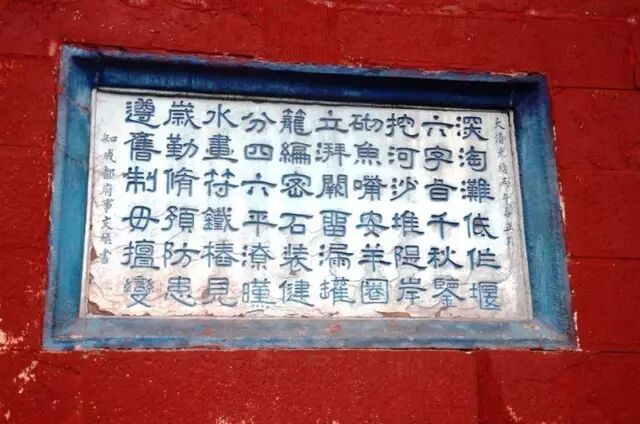 大清光緒丙午年春正月
深淘灘低作堰
六字旨千秋鑒
挖河沙堆隄岸
砌魚嘴安羊圈
立湃闕畱漏罐
籠編密石裝健
分四六平潦暵
水畫符鐵樁見
歲勤脩預防患
遵舊制毋擅變
知成都府事文煥書